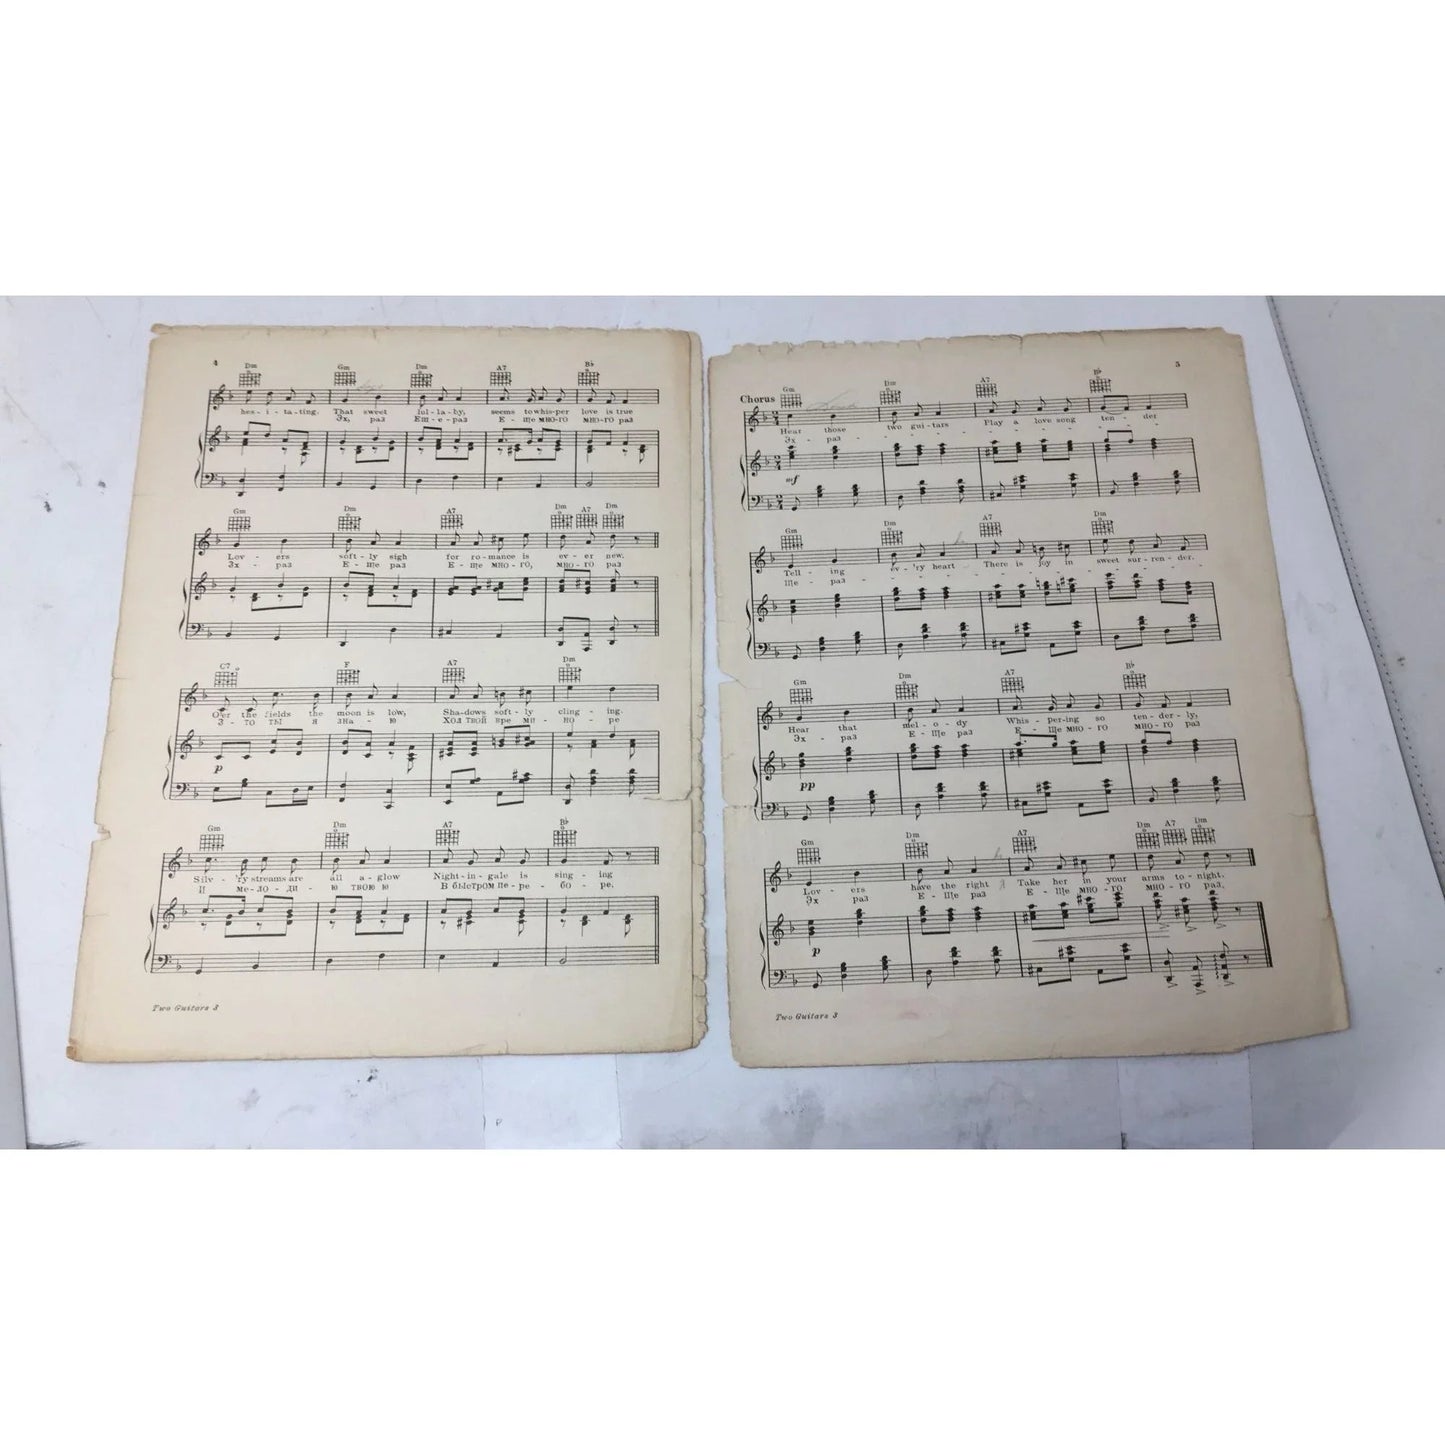 4
Dm Gm Dm A7 B♭
hes - i - ta - ting. That sweet lul - la - by, seems to whis - per love is true
Эх, раз Еще - раз Е - ще МНО-ГО МНО-ГО раз
Gm Dm A7 Dm A7 Dm
Lov - ers soft - ly sigh for ro - mance is ev - er new.
Эх - раз Е - ще раз Е - ще МНО-ГО, МНО-ГО раз
C7 F A7 Dm
O'er the fields the moon is low, Sha - dows soft - ly cling - ing.
Э - ТО ТЫ Я ЗНА - Ю ХОД ТВОЙ вре МИ - НО - ре
Gm Dm A7 B♭
Silv - 'ry streams are all a - glow Night - in - gale is sing - ing
И МЕ-ЛО-ДИ - Ю ТВОЮ В БЫСТРОМ пе - ре - бо - ре.
Two Guitars 3
5
Chorus
Gm Dm A7 B♭
Hear those two gui - tars Play a love song ten - der
Эх - раз
mf
Gm Dm A7 Dm
Tell - ing ev - 'ry heart There is joy in sweet sur - ren - der.
Ще - раз
Gm Dm A7 B♭
Hear that mel - o - dy Whis - per - ing so ten - der - ly,
Эх - раз Е - Ще раз Е - Ще МНО - ГО МНО-ГО раз
pp
Gm Dm A7 Dm A7 Dm
Lov - ers have the right Take her in your arms to - night.
Эх раз Е - Ще раз Е - Ще МНО - ГО МНО - ГО раз,
p
Two Guitars 3